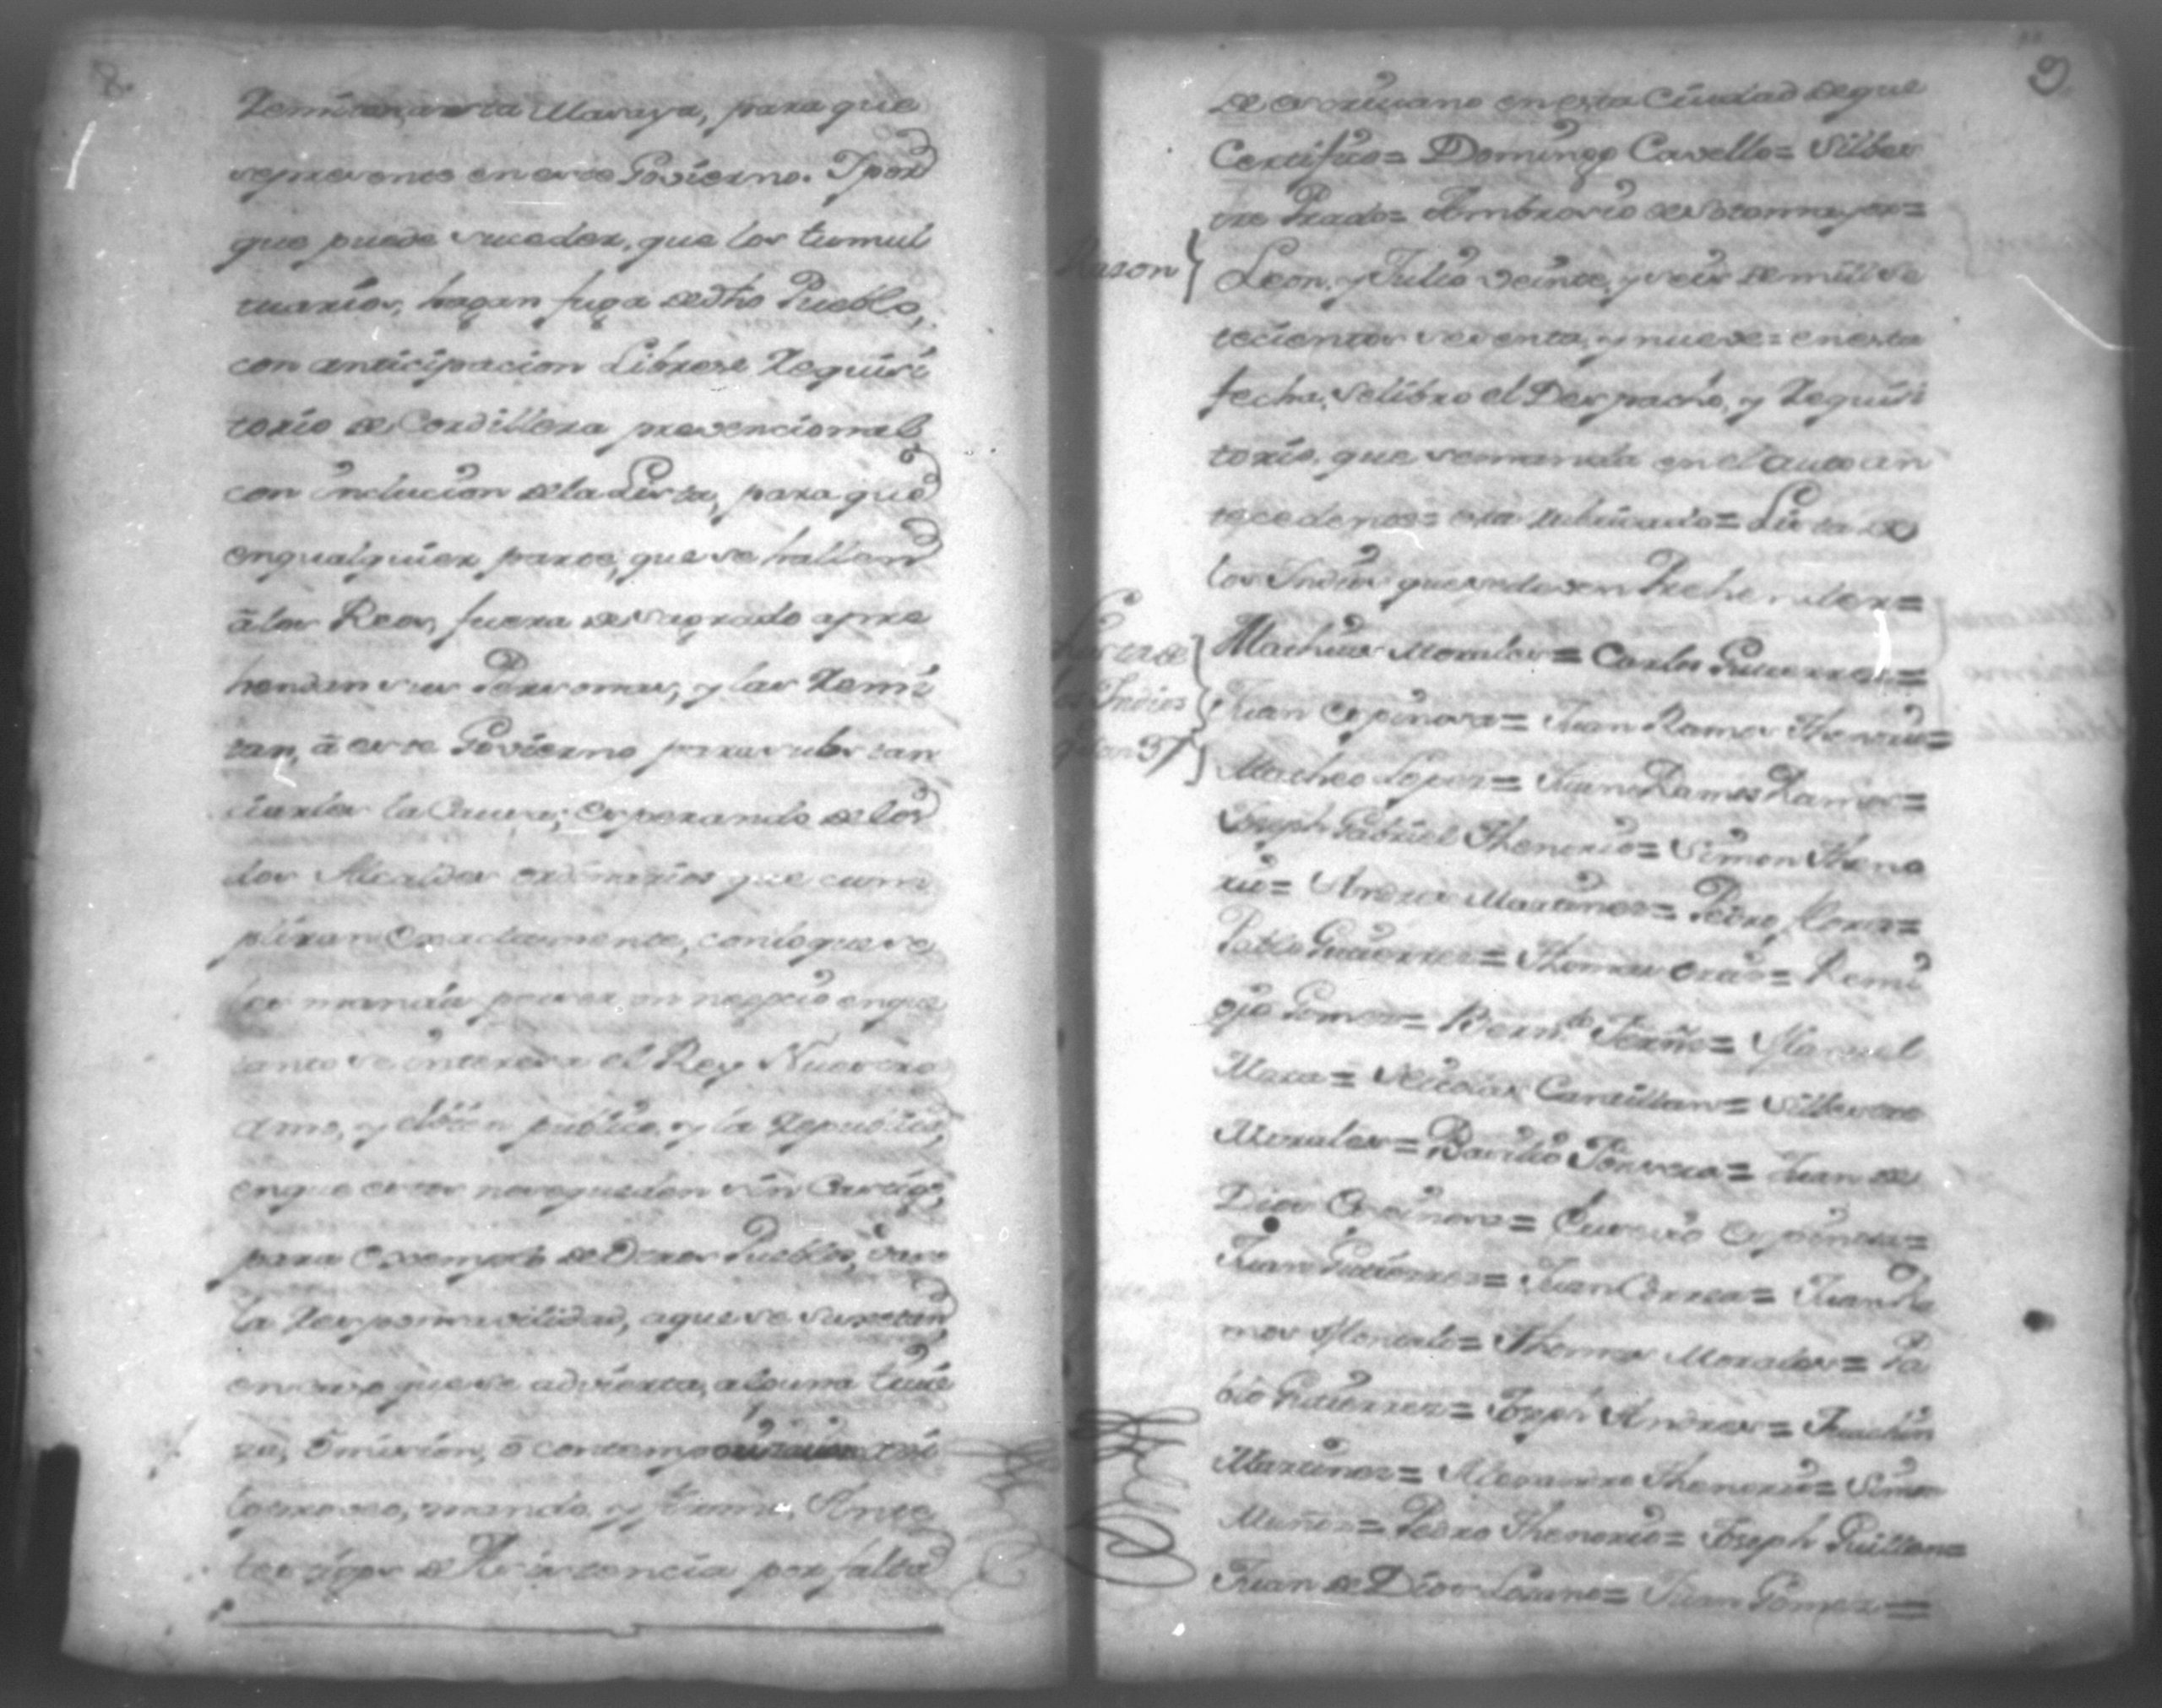 8.
Remitan, a esta Masaya, para que
represente en este Govierno. I por
que puede suceder, que los tumul
tuarios, hagan fuga de dho Pueblo,
con anticipacion Librese Requisi
torio de Cordillera prevencional
con inclucion de la Lista, para que
en qualquier parte, que se hallen
â los Reos, fuera de sagrado apre
hendan sus Personas, y las Remi
tan, â este Govierno para substan
ciarles la Causa; esperando de los
dos Alcaldes ordinarios que cum
pliran exactamente, con lo que se
les manda por ser un negocio en que
tanto se interesa el Rey Nuestro
amo, y el bien publico, y la Republica,
en que estos no se queden sin Castigo,
para exemplo de otros Pueblos, vajo
la responsavilidad, a que se sujetan
en caso que se advierta, alguna tivie
za, ô micion, ô contemp asi
lo proveo, mando, y firmo. Ante
testigos de Asistencia por falta
9
de escrivano en esta Ciudad de que
Certifico= Domingo Cavello= Silbes
tre Prado= Ambrosio de Sotomayor=
Razon} Leon, y Julio veinte, y seis de mill se
tecientos setenta, y nueve= en esta
fecha, se libro el Despacho, y Requisi
torio, que se manda en el auto an
tecedente= esta rubricado= Lista de
los Indios que se deven Prehender=
Lista de
los Indios
37
Mathias Morales= Carlos Gutierres=
Juan Espinosa= Juan Ramos Thenorio=
Matheo Lopes= Juan Ramos Ramos=
Joseph Gabriel Thenorio= Simon Theno
rio= Andres Martines= Pedro Mora=
Pablo Gutierres= Thomas Ortis= Remi
gio Gomes= Bern.do = Manuel
Mora= Nicolas = Silbestre
Morales= Basilio Fonseca= Juan de
Dios Espinosa= Eusevio Espinosa=
Juan Gutierres= Juan Correa= Juan Ra
mos = Thomas Morales= Pa
blo Gutierres= Joseph Andres= Juachin
Martines= Alexandro Thenorio= Simon
Muños= Pedro Thenorio= Joseph Guillen=
Juan de Dios Losano= Juan Gomes=